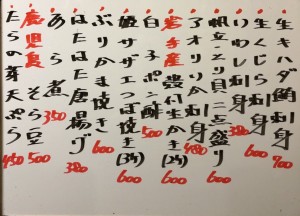 生キハダ鮪刺身 900
生くじら刺身 600
いわし刺身 480
帆立・とり貝二点盛り 600
アオリいか刺身 600
岩手産 殻付生かき(2ケ) 600
白子ポン酢 500
姫サザエつぼ焼き(3ケ) 600
ぶりかま焼き 600
はたはた唐揚げ 380
あら煮 350
鹿児島 そら豆 500
たらの芽天ぷら 450